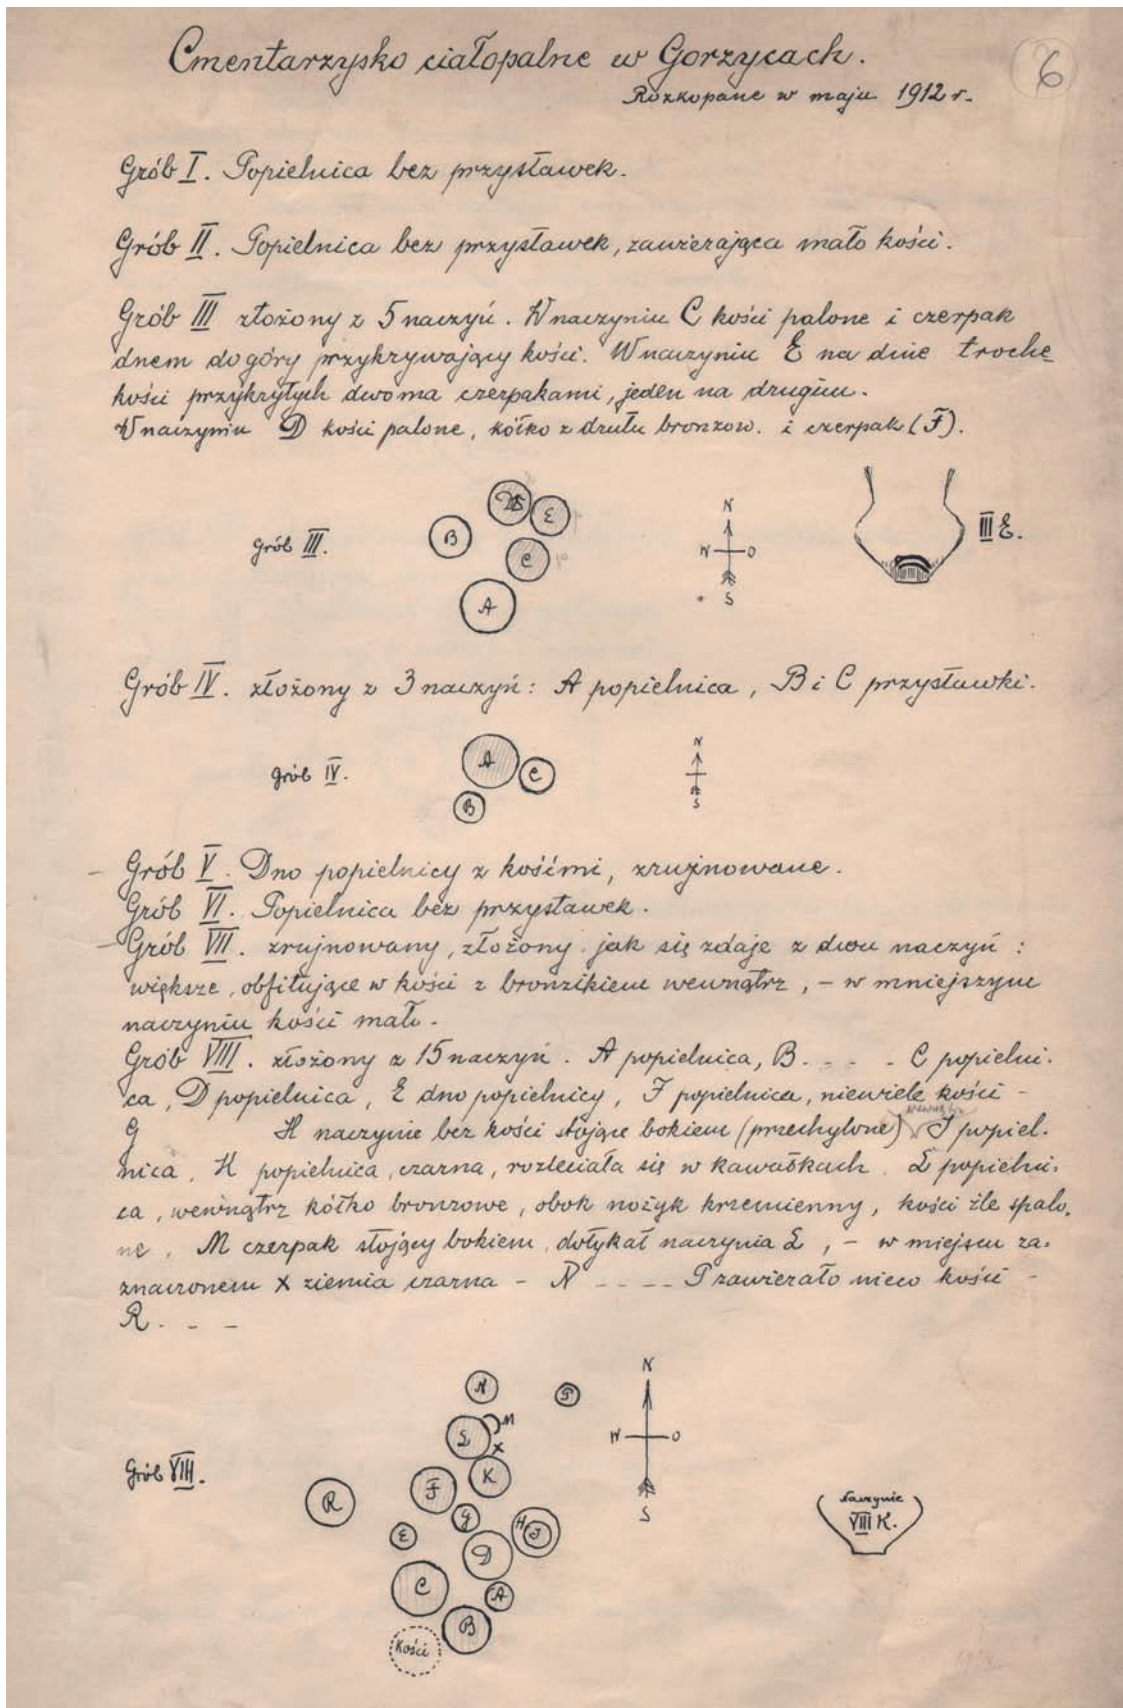 Cmentarzysko ciałopalne w Gorzycach.
6
Rozkopane w maju 1912 r.
Grób I. Popielnica bez przystawek.
Grób II. Popielnica bez przystawek, zawierająca mało kości.
Grób III złożony z 5 naczyń. W naczyniu C kości palone i czerpak
dnem do góry przykrywający kości. W naczyniu E na dnie trochę
kości przykrytych dwoma czerpakami, jeden na drugim.
W naczyniu D kości palone, kółko z drutu bronzow. i czerpak (F).
Grób III.
B
D
E
C
A
N
W O
S
III E.
Grób IV. złożony z 3 naczyń: A popielnica, B i C przystawki.
grób IV.
A
C
B
N
S
- Grób V. Dno popielnicy z kośćmi, zrujnowane.
Grób VI. Popielnica bez przystawek.
- Grób VII. zrujnowany, złożony jak się zdaje z dwu naczyń:
większe, obfitujące w kości z bronzikiem wewnątrz, - w mniejszym
naczyniu kości mało.
Grób VIII. złożony z 15 naczyń. A popielnica, B. - - - C popielni-
ca, D popielnica, E dno popielnicy, F popielnica, niewiele kości -
G H naczynie bez kości stojące bokiem (przechylone) J popiel-
nica, K popielnica, czarna, rozleciała się w kawałkach. L popielni-
ca, wewnątrz kółko bronzowe, obok nożyk krzemienny, kości źle spalo-
ne. M czerpak stojący bokiem, dotykał naczynia L, - w miejscu za-
znaczonem x ziemia czarna - N - - - - P zawierało nieco kości -
R. - -
Grób VIII.
N
P
M
L
x
K
F
R
G
H
J
E
D
C
A
B
Kości
N
W O
S
Naczynie
VIII K.